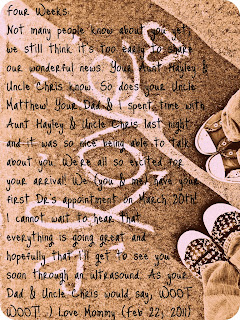 Four Weeks:
Not many people know about you yet,
we still think it's too early to share
our wonderful news. Your Aunt Hayley &
Uncle Chris know. So does your Uncle
Matthew. Your Dad & I spent time with
Aunt Hayley & Uncle Chris last night
and it was so nice being able to talk
about you. We're all so excited for
your arrival! We (you & me) have your
first Dr's appointment on March 20th!
I cannot wait to hear that
everything is going great and
hopefully that I'll get to see you
soon through an ultrasound. As your
Dad & Uncle Chris would say, WOOT
WOOT. :) Love Mommy (Feb 22, 2011)